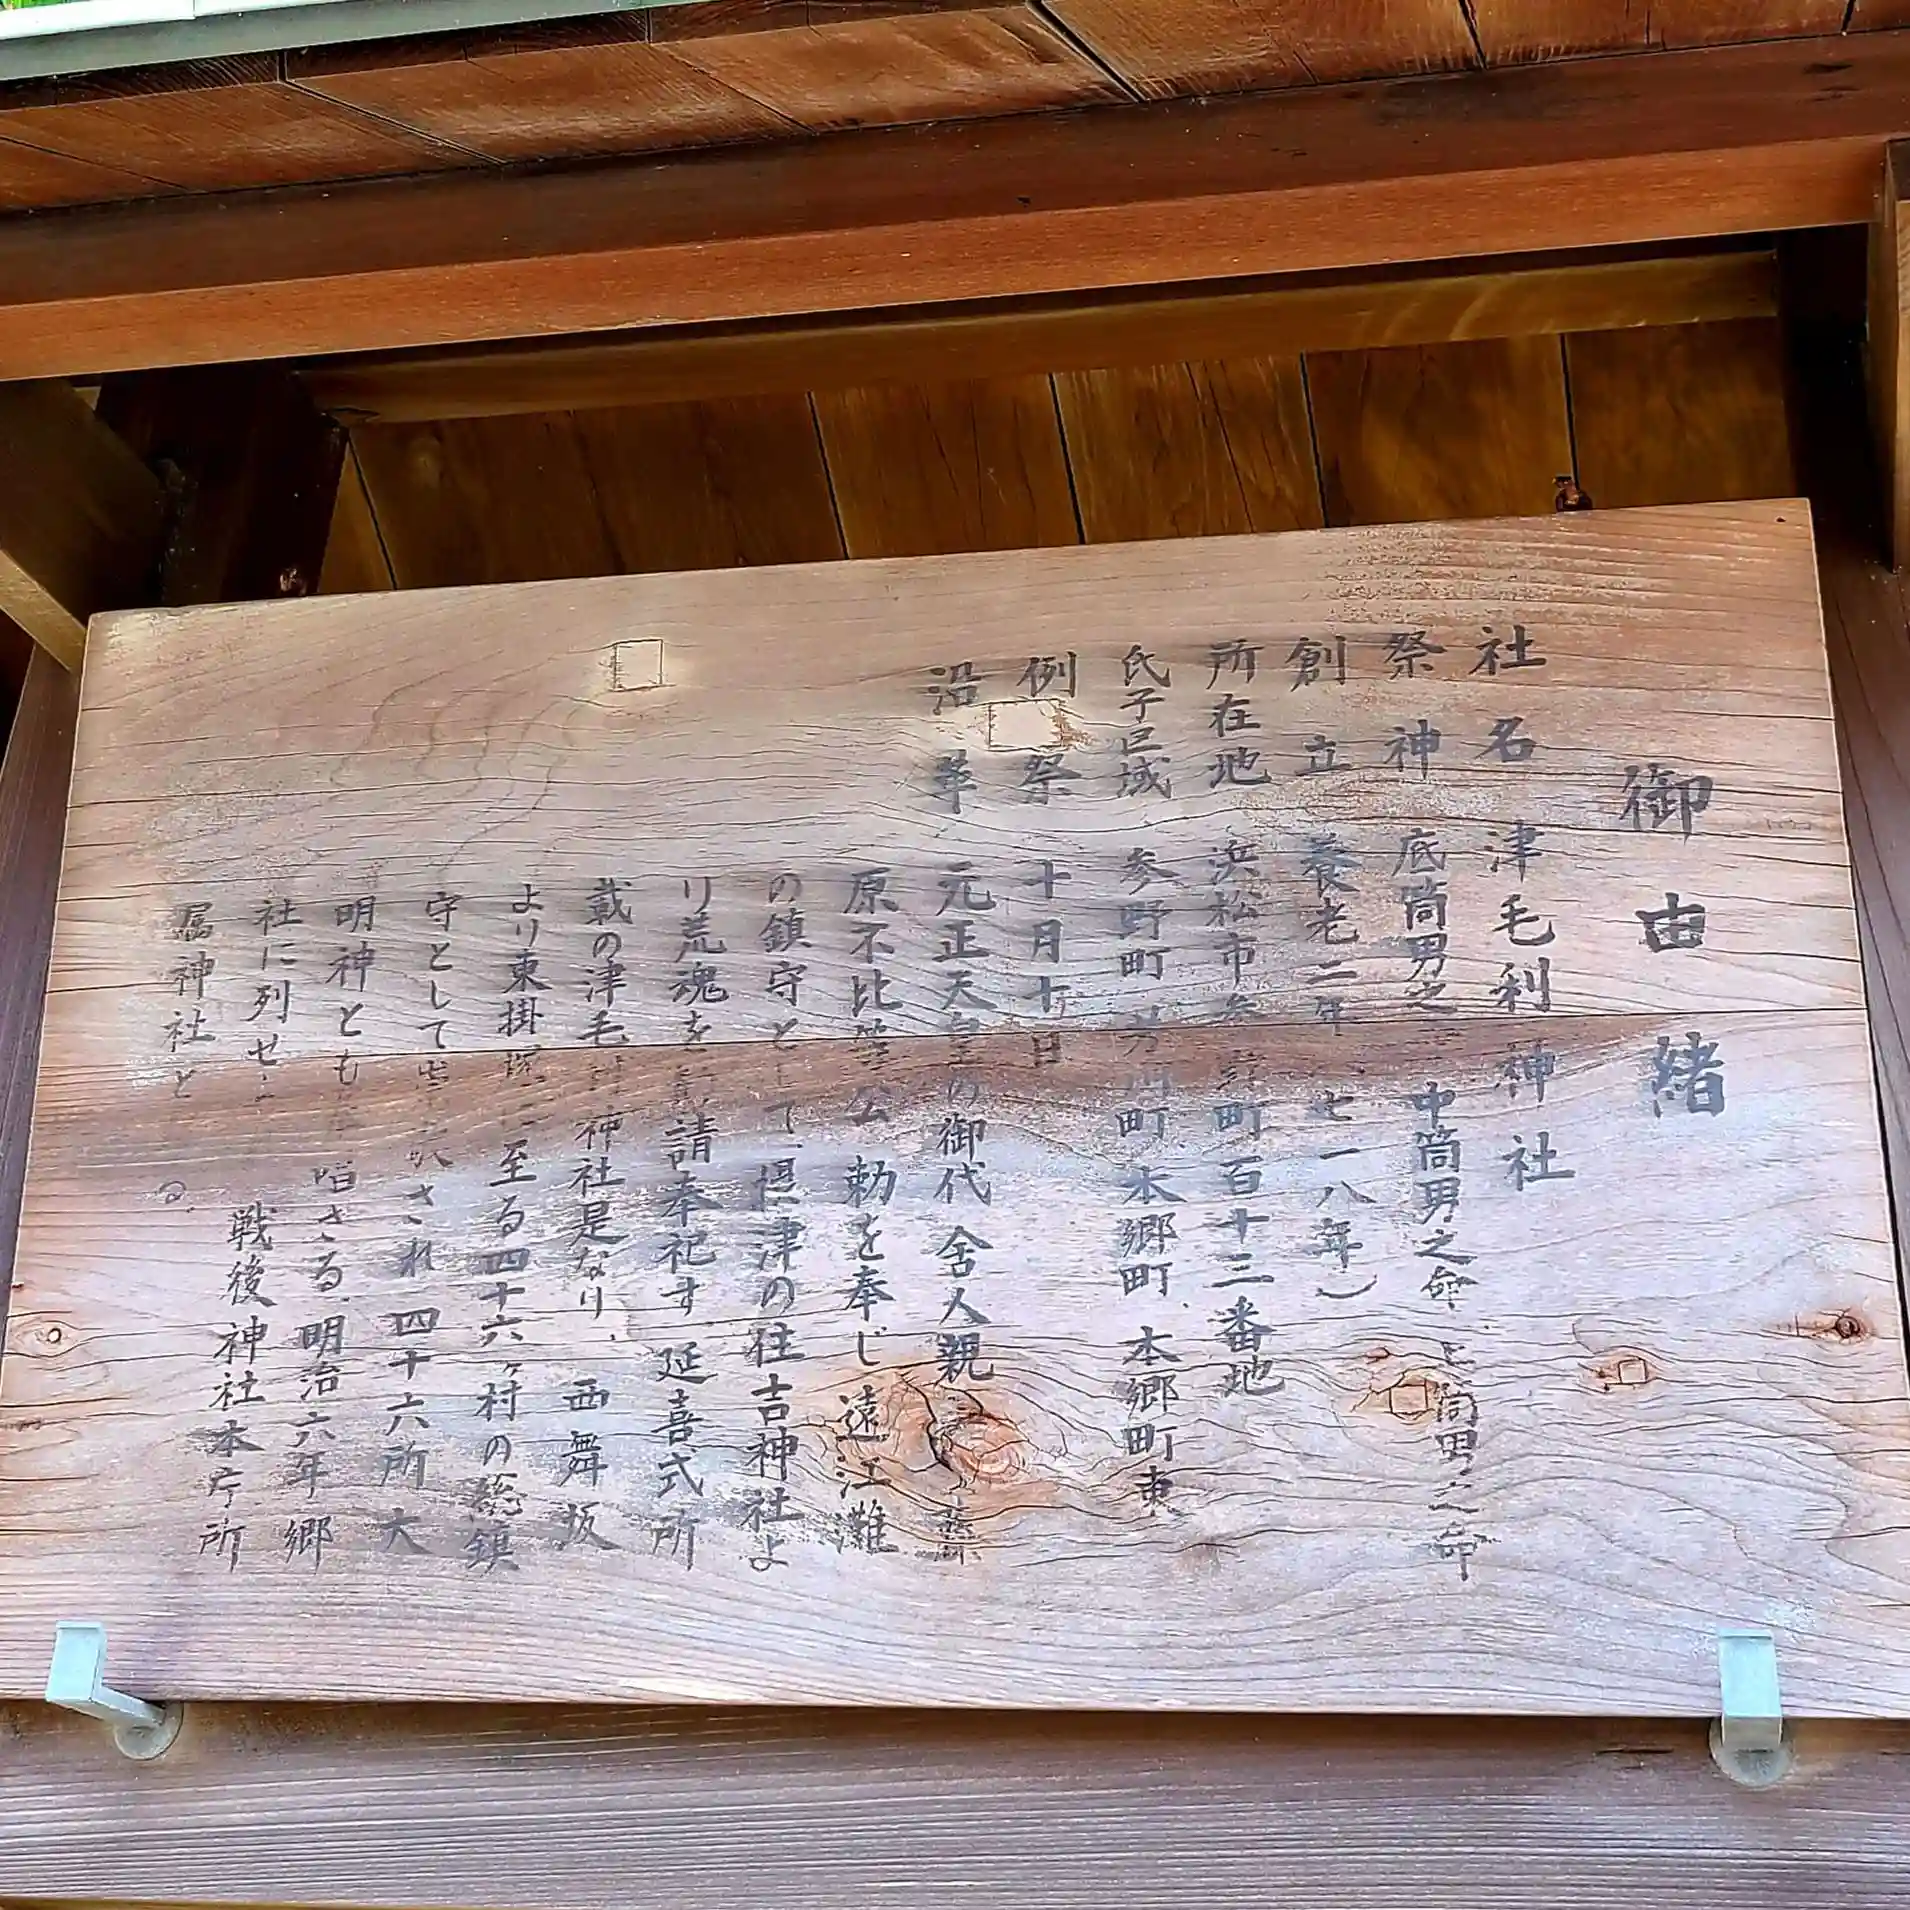 御由緒
社名 津毛利神社
祭神 底筒男之 中筒男之命 上筒男之命
創立 養老二年 七一八年)
所在地 浜松市参野町百十三番地
氏子区域 参野町 芳川町 本郷町 本郷町東
例祭 十月十 日
沿革 元正天皇の御代 舎人親 藤
原不比等公 勅を奉じ 遠江灘
の鎮守として、摂津の住吉神社よ
り荒魂を勧請奉祀す 延喜式所
載の津毛利神社是なり、西舞坂
より東掛塚に至る四十六ヶ村の総鎮
守として され 四十六所大
明神とも 唱さる、明治六年郷
社に列せ 戦後神社本庁所
属神社と る。